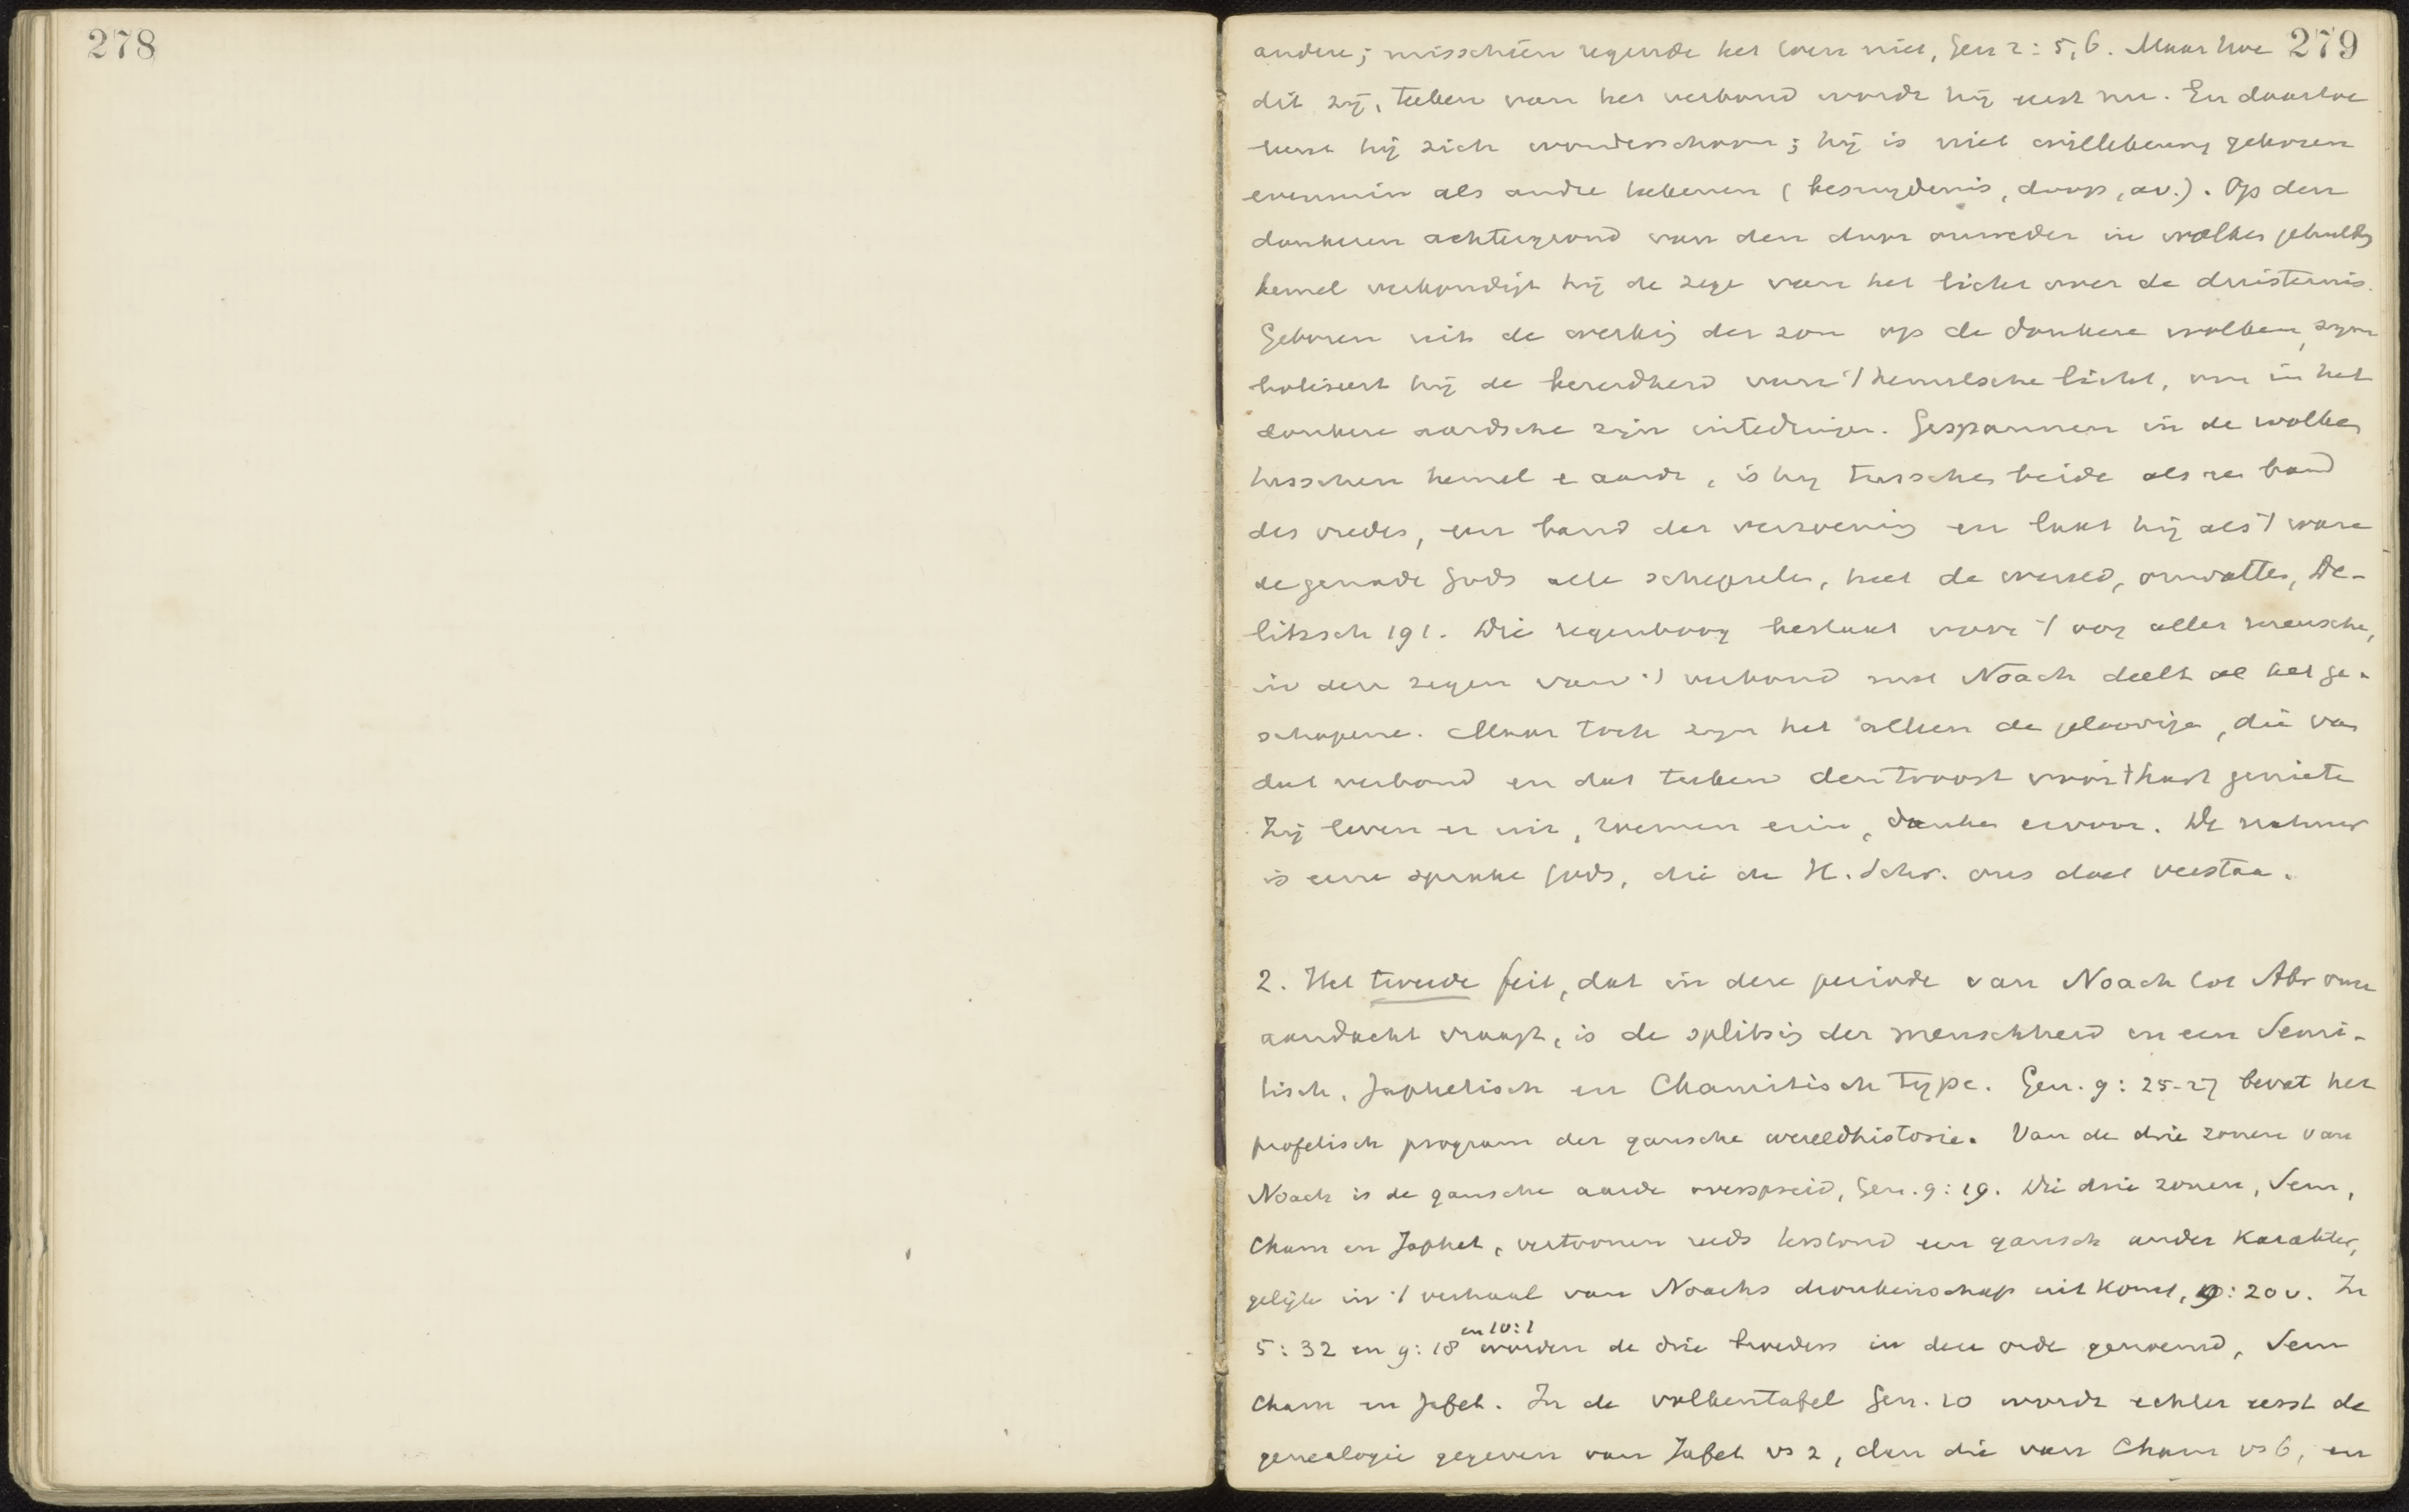 278
279
andere; misschien regende het toen niet, Gen 2: 5, 6. Maar hoe
dit zij, teeken van het verbond wordt hij eerst nu. En daartoe
leent hij zich wonderschoon; hij is niet willekeurig gekozen
evenmin als andre teekenen (besnijdenis, doop, av.). Op den
donkeren achtergrond van den door onweder in wolken gehulden
hemel verkondigt hij de zege van het licht over de duisternis.
Geboren uit de werking der zon op de donkere wolken, sym
boliseert hij de bereidheid van 't hemelsche licht, om in het
donkere aardsche zijn intedringen. Gespannen in de wolken
tusschen hemel e aarde, is hij tusschen beide als een band
des vredes, een band der verzoening en laat hij als 't ware
de genade Gods alle schepselen, heel de wereld, omvatten, De-
litzsch 191. Die regenboog bestaat voor 't oog aller menschen,
in den zegen van 't verbond met Noach deelt al het ge-
schapene. Maar toch zijn het alleen de geloovigen, die van
dat verbond en dat teeken den troost voor 't hart genieten
Zij leven er uit, roemen erin, danken ervoor. De natuur
is eene sprake Gods, die de H. Schr. ons doet verstaan.
2. Het tweede feit, dat in deze periode van Noach tot Abr onze
aandacht vraagt, is de splitsing der menschheid in een Semi-
tisch, Japhetisch en Chamitisch type. Gen. 9: 25-27 bevat het
profetisch program der gansche wereldhistorie. Van de drie zonen van
Noach is de gansche aarde overspreid, Gen. 9: 19. Die drie zonen, Sem,
Cham en Japhet, vertoonen reeds terstond een gansch ander karakter,
gelijk in 't verhaal van Noachs dronkenschap uit komt, 9: 20 v. In
5: 32 en 9: 18 en 10:1 worden de drie broeders in deze orde genoemd, Sem
Cham en Jafet. In de volkentafel Gen. 10 wordt echter eerst de
genealogie gegeven van Jafet vs 2, dan die van Cham vs 6, en